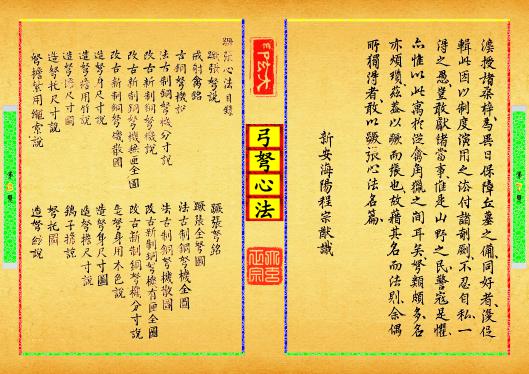 漫授諸梓、為異日保障丘壟之備、同好者、漫促
輯此因以制度演用之法付諸剞劂、不忍自私、一
得之愚、豈敢獻諸當事、惟是山野之民、警寇是懼、
亦惟以此寓於從禽角獵之間耳矣、弩類頗多、名
亦頗瑣、茲蓋以蹶而張也、故藉其名而法別、余偶
所獨得者、敢以蹶張心法名篇、
新安海陽程宗猷識
弓弩心法
蹶張心法目錄
蹶張弩說
蹶張弩銘
戒射禽銘
蹶張全弩圖
古銅弩機攷
法古制銅弩機全圖
法古制銅弩機分寸說
法古制銅弩機散圖
改古新制銅弩機說
改古新制銅弩機有匣全圖
改古新制銅弩機無匣全圖
改古新制銅弩機分寸說
改古新制銅弩機散圖
造弩身用木色說
造弩身尺寸說
造弩身尺寸圖
造弩擔用竹說
造弩擔尺寸說
造弩擔尺寸圖
造弩托尺寸說
弩托圖
弩擔紮用繩索說
造弩絃說